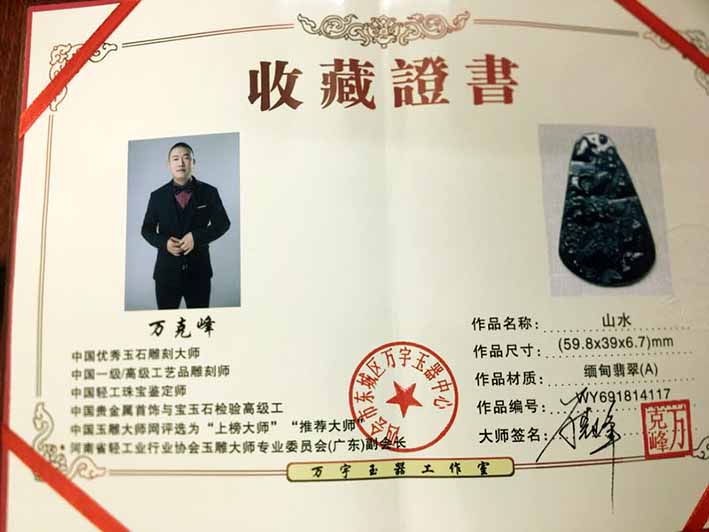 收藏證書
万克峰
中国优秀玉石雕刻大师
中国一级/高级工艺品雕刻师
中国轻工珠宝鉴定师
中国贵金属首饰与宝玉石检验高级工
中国玉雕大师网评选为“上榜大师”“推荐大师”
河南省轻工业行业协会玉雕大师专业委员会(广东)副会长
作品名称: 山水
作品尺寸: (59.8x39x6.7)mm
作品材质: 缅甸翡翠(A)
作品编号: WY691814117
大师签名:
万克峰
四会市东城区万宇玉器中心
万宇玉器工作室